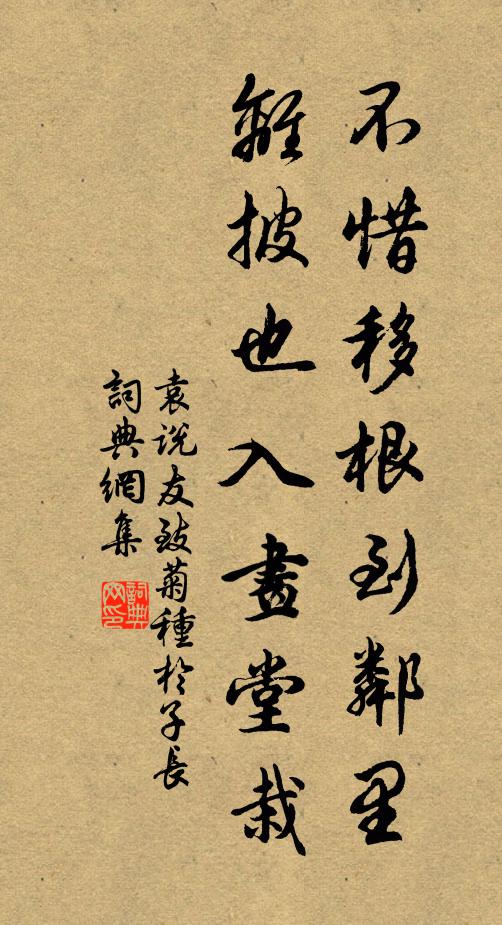 不惜移根到鄰里
離披也入畫堂栽
袁說友致菊種於子長
詞典網集
詞典網印